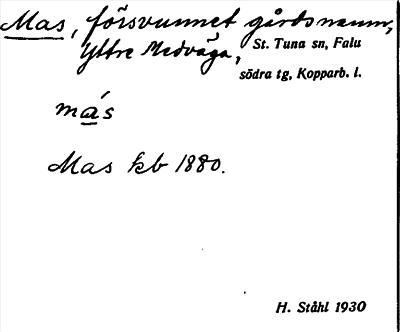 Mas, försvunnet gårdsnamn,
Yttre Medväga, St. Tuna sn, Falu
södra tg, Kopparb. l.
más
Mas kb 1880.
H. Ståhl 1930